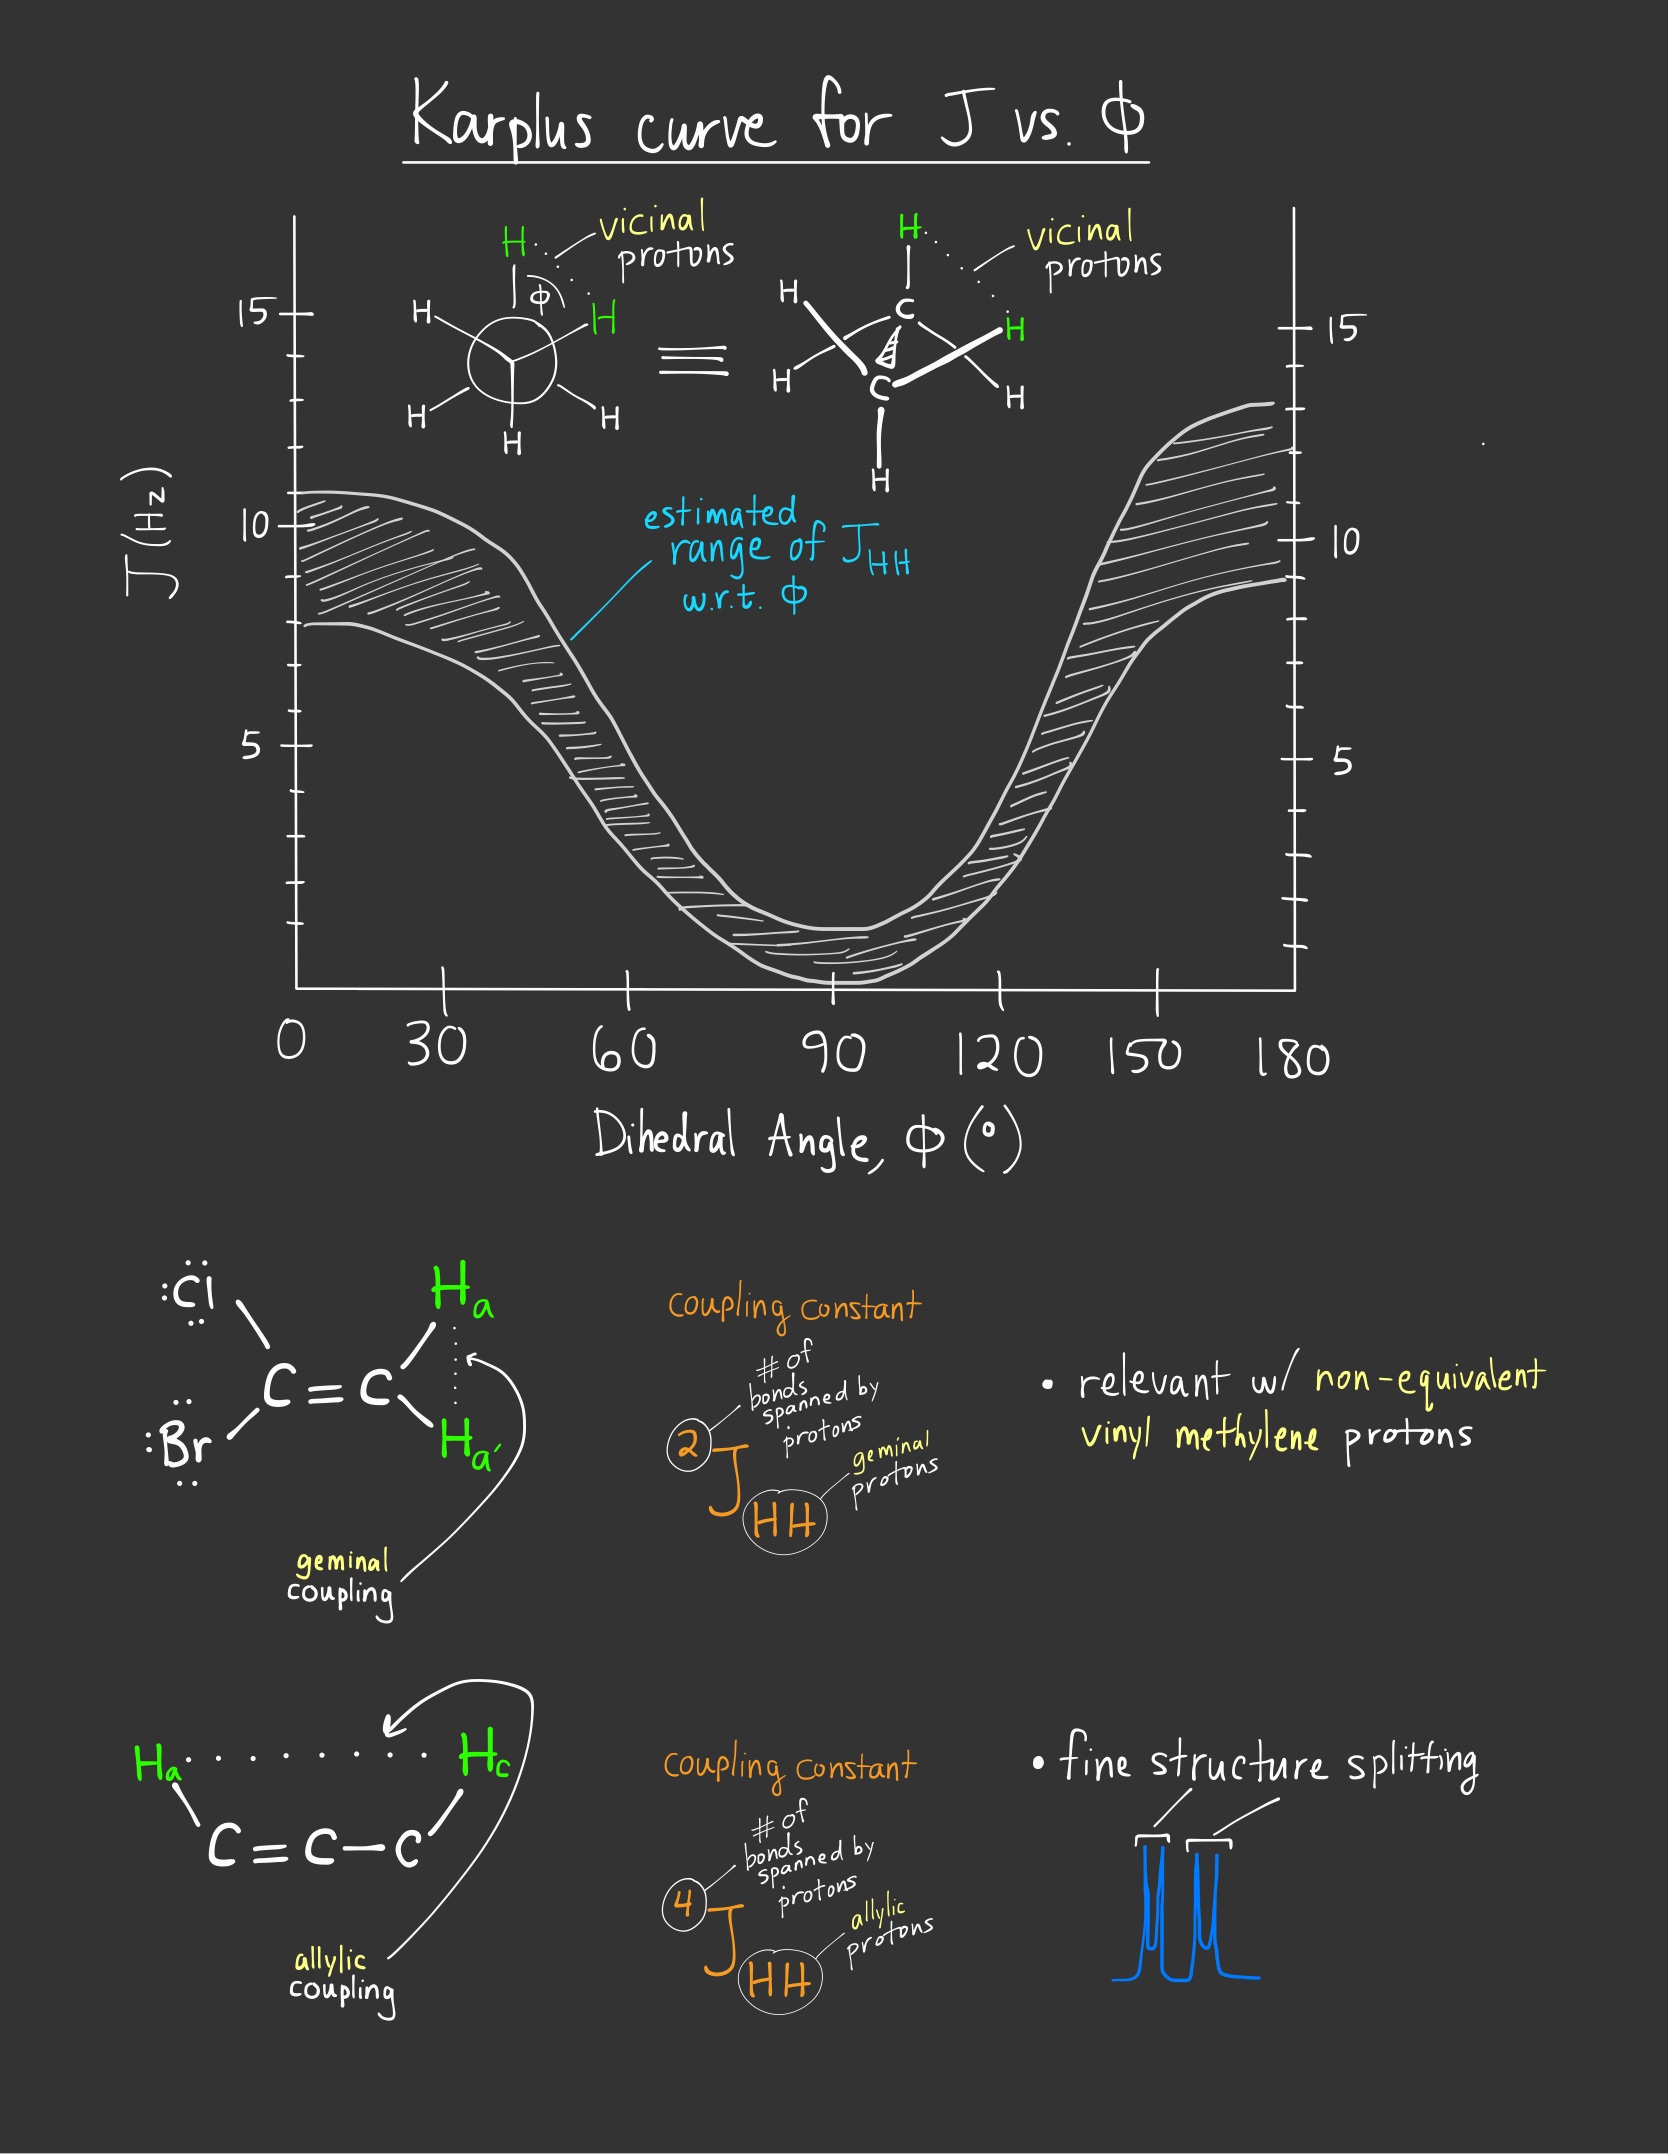 Karplus curve for J vs. ϕ
vicinal
protons
vicinal
protons
H
H
ϕ
H
H
H
H
H
H
C
H
H
C
H
H
H
≡
estimated
range of J_HH
w.r.t. ϕ
J (Hz)
15
10
5
15
10
5
0 30 60 90 120 150 180
Dihedral Angle, ϕ (°)
:Cl
Ha
C=C
:Br
Ha'
geminal
coupling
coupling constant
# of
bonds
spanned by
protons
2
J
HH
geminal
protons
• relevant w/ non-equivalent
vinyl methylene protons
Ha Hc
C=C-C
allylic
coupling
coupling constant
# of
bonds
spanned by
protons
4
J
HH
allylic
protons
• fine structure splitting